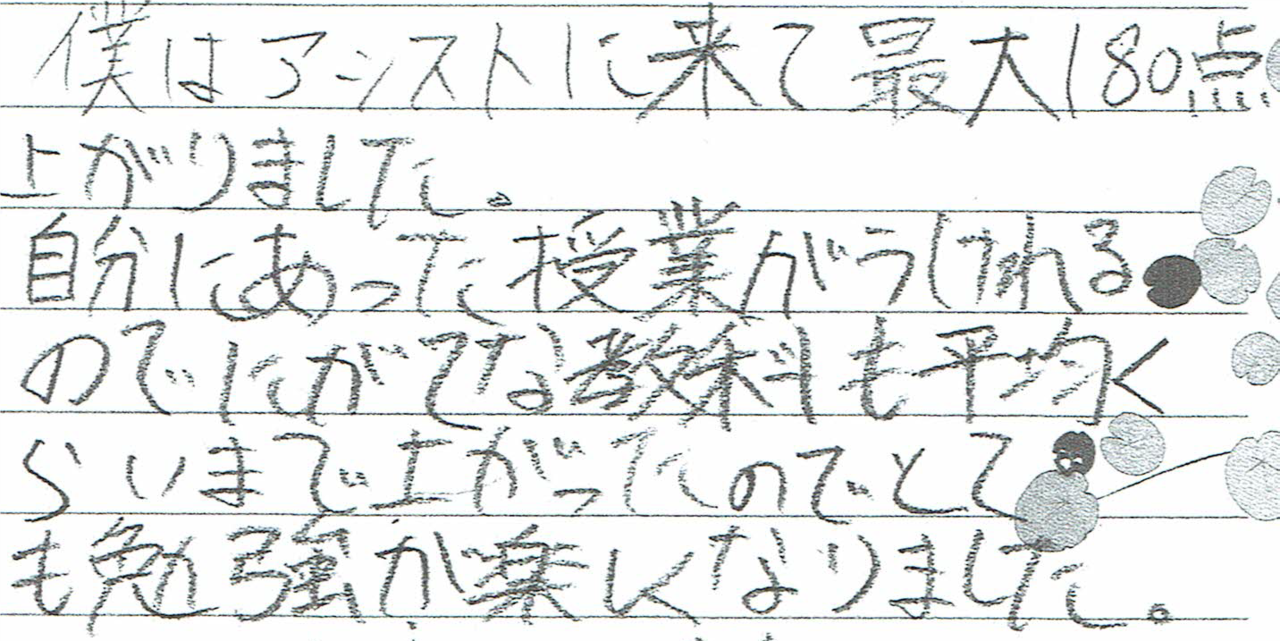 僕はアシストに来て最大180点
上がりました。
自分にあった授業がうけれる
のでにがてな教科も平均く
らいまで上がったのでとて
も勉強が楽しくなりました。